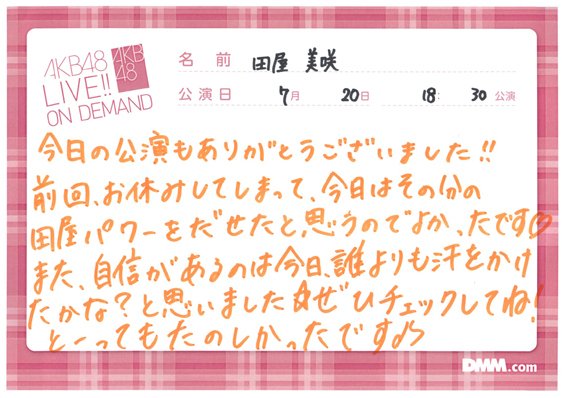 AKB48
LIVE!!
ON DEMAND
AKB
48
名前 田屋 美咲
公演日 7月 20日 18: 30公演
今日の公演もありがとうございました!!
前回、お休みしてしまって、今日はその分の
田屋パワーをだせたと思うのでよかったです♡
また、自信があるのは今日、誰よりも汗をかけ
たかな?と思いました☆ぜひチェックしてね!
とーってもたのしかったです♪
DMM.com